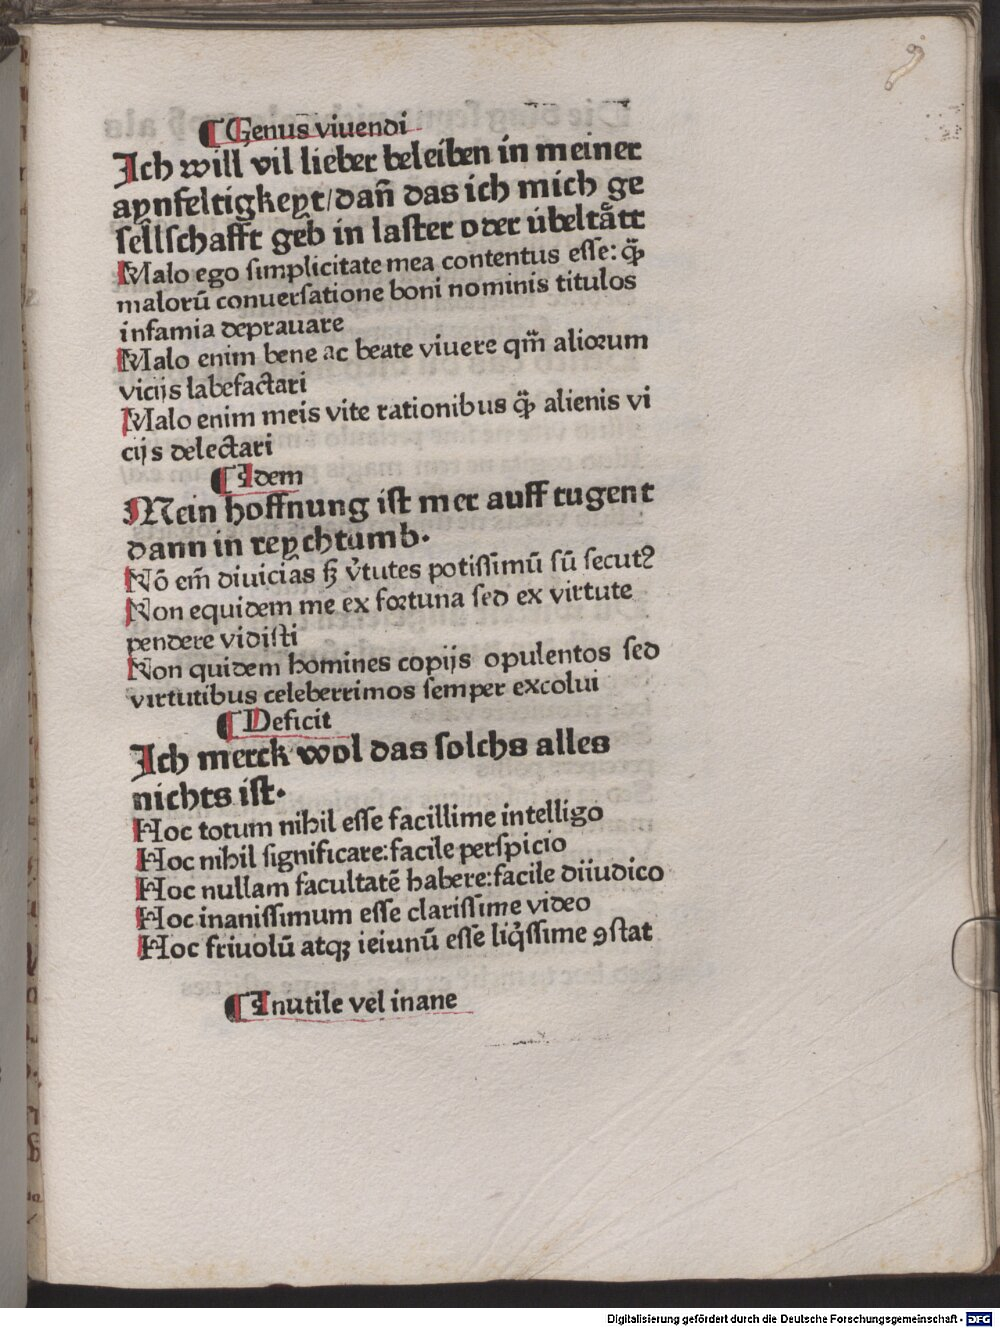 9
¶ Genus viuendi
Ich will vil lieber beleiben in meiner
aynfeltigkeyt/dañ das ich mich ge
sellschafft geb in laster oder úbeltått
Malo ego simplicitate mea contentus esse: q̃ꝫ
malorũ conuersatione boni nominis titulos
infamia deprauare
Malo enim bene ac beate viuere qm̃ aliorum
vicijs labefactari
Malo enim meis vite rationibus q̃ꝫ alienis vi
cijs delectari
¶ Idem
Mein hoffnung ist mer auff tugent
dann in reychtumb.
Nõ em̃ diuicias sꝫ v̓tutes potissimũ sũ secutꝰ
Non equidem me ex fortuna sed ex virtute
pendere vidisti
Non quidem homines copijs opulentos sed
virtutibus celeberrimos semper excolui
¶ Deficit
Ich merck wol das solchs alles
nichts ist.
Hoc totum nihil esse facillime intelligo
Hoc nihil significare: facile perspicio
Hoc nullam facultatẽ habere: facile diiudico
Hoc inanissimum esse clarissime video
Hoc friuolũ atqꝫ ieiunũ esse liq̓ssime ꝯstat
¶ Inutile vel inane
Digitalisierung gefördert durch die Deutsche Forschungsgemeinschaft - DFG